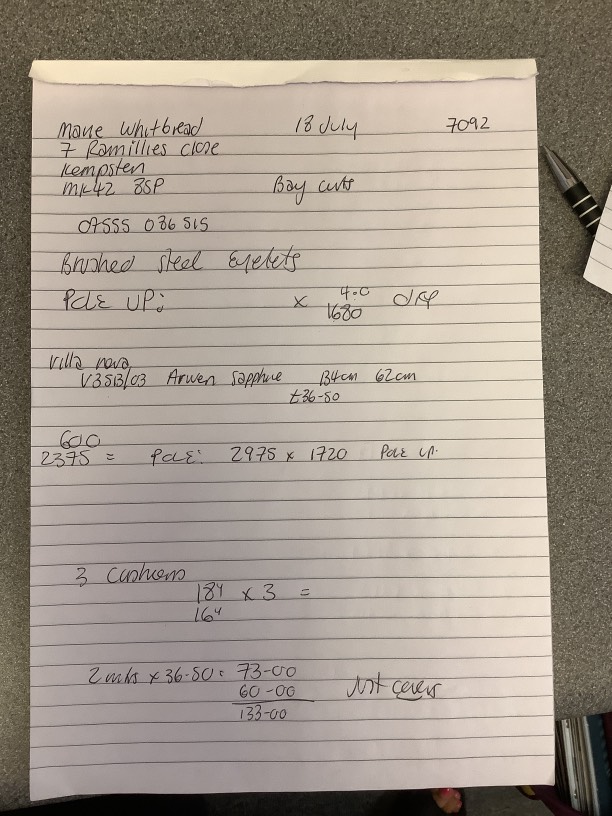 Marie Whitbread 18 July 7092
7 Ramillies close
Kempsten
MK42 8SP Bay curts
07555 036 515
Brushed steel Eyelets
Pole UP: x 40 drp
1680
Villa nova
V3513/03 Arwen Sapphire 134cm 62cm
£36-50
600
2375 = Pole: 2975 x 1720 Pole up.
3 Cushions
18" x 3 =
16"
2 mts x 36-50 = 73-00
60-00 Just covers
133-00